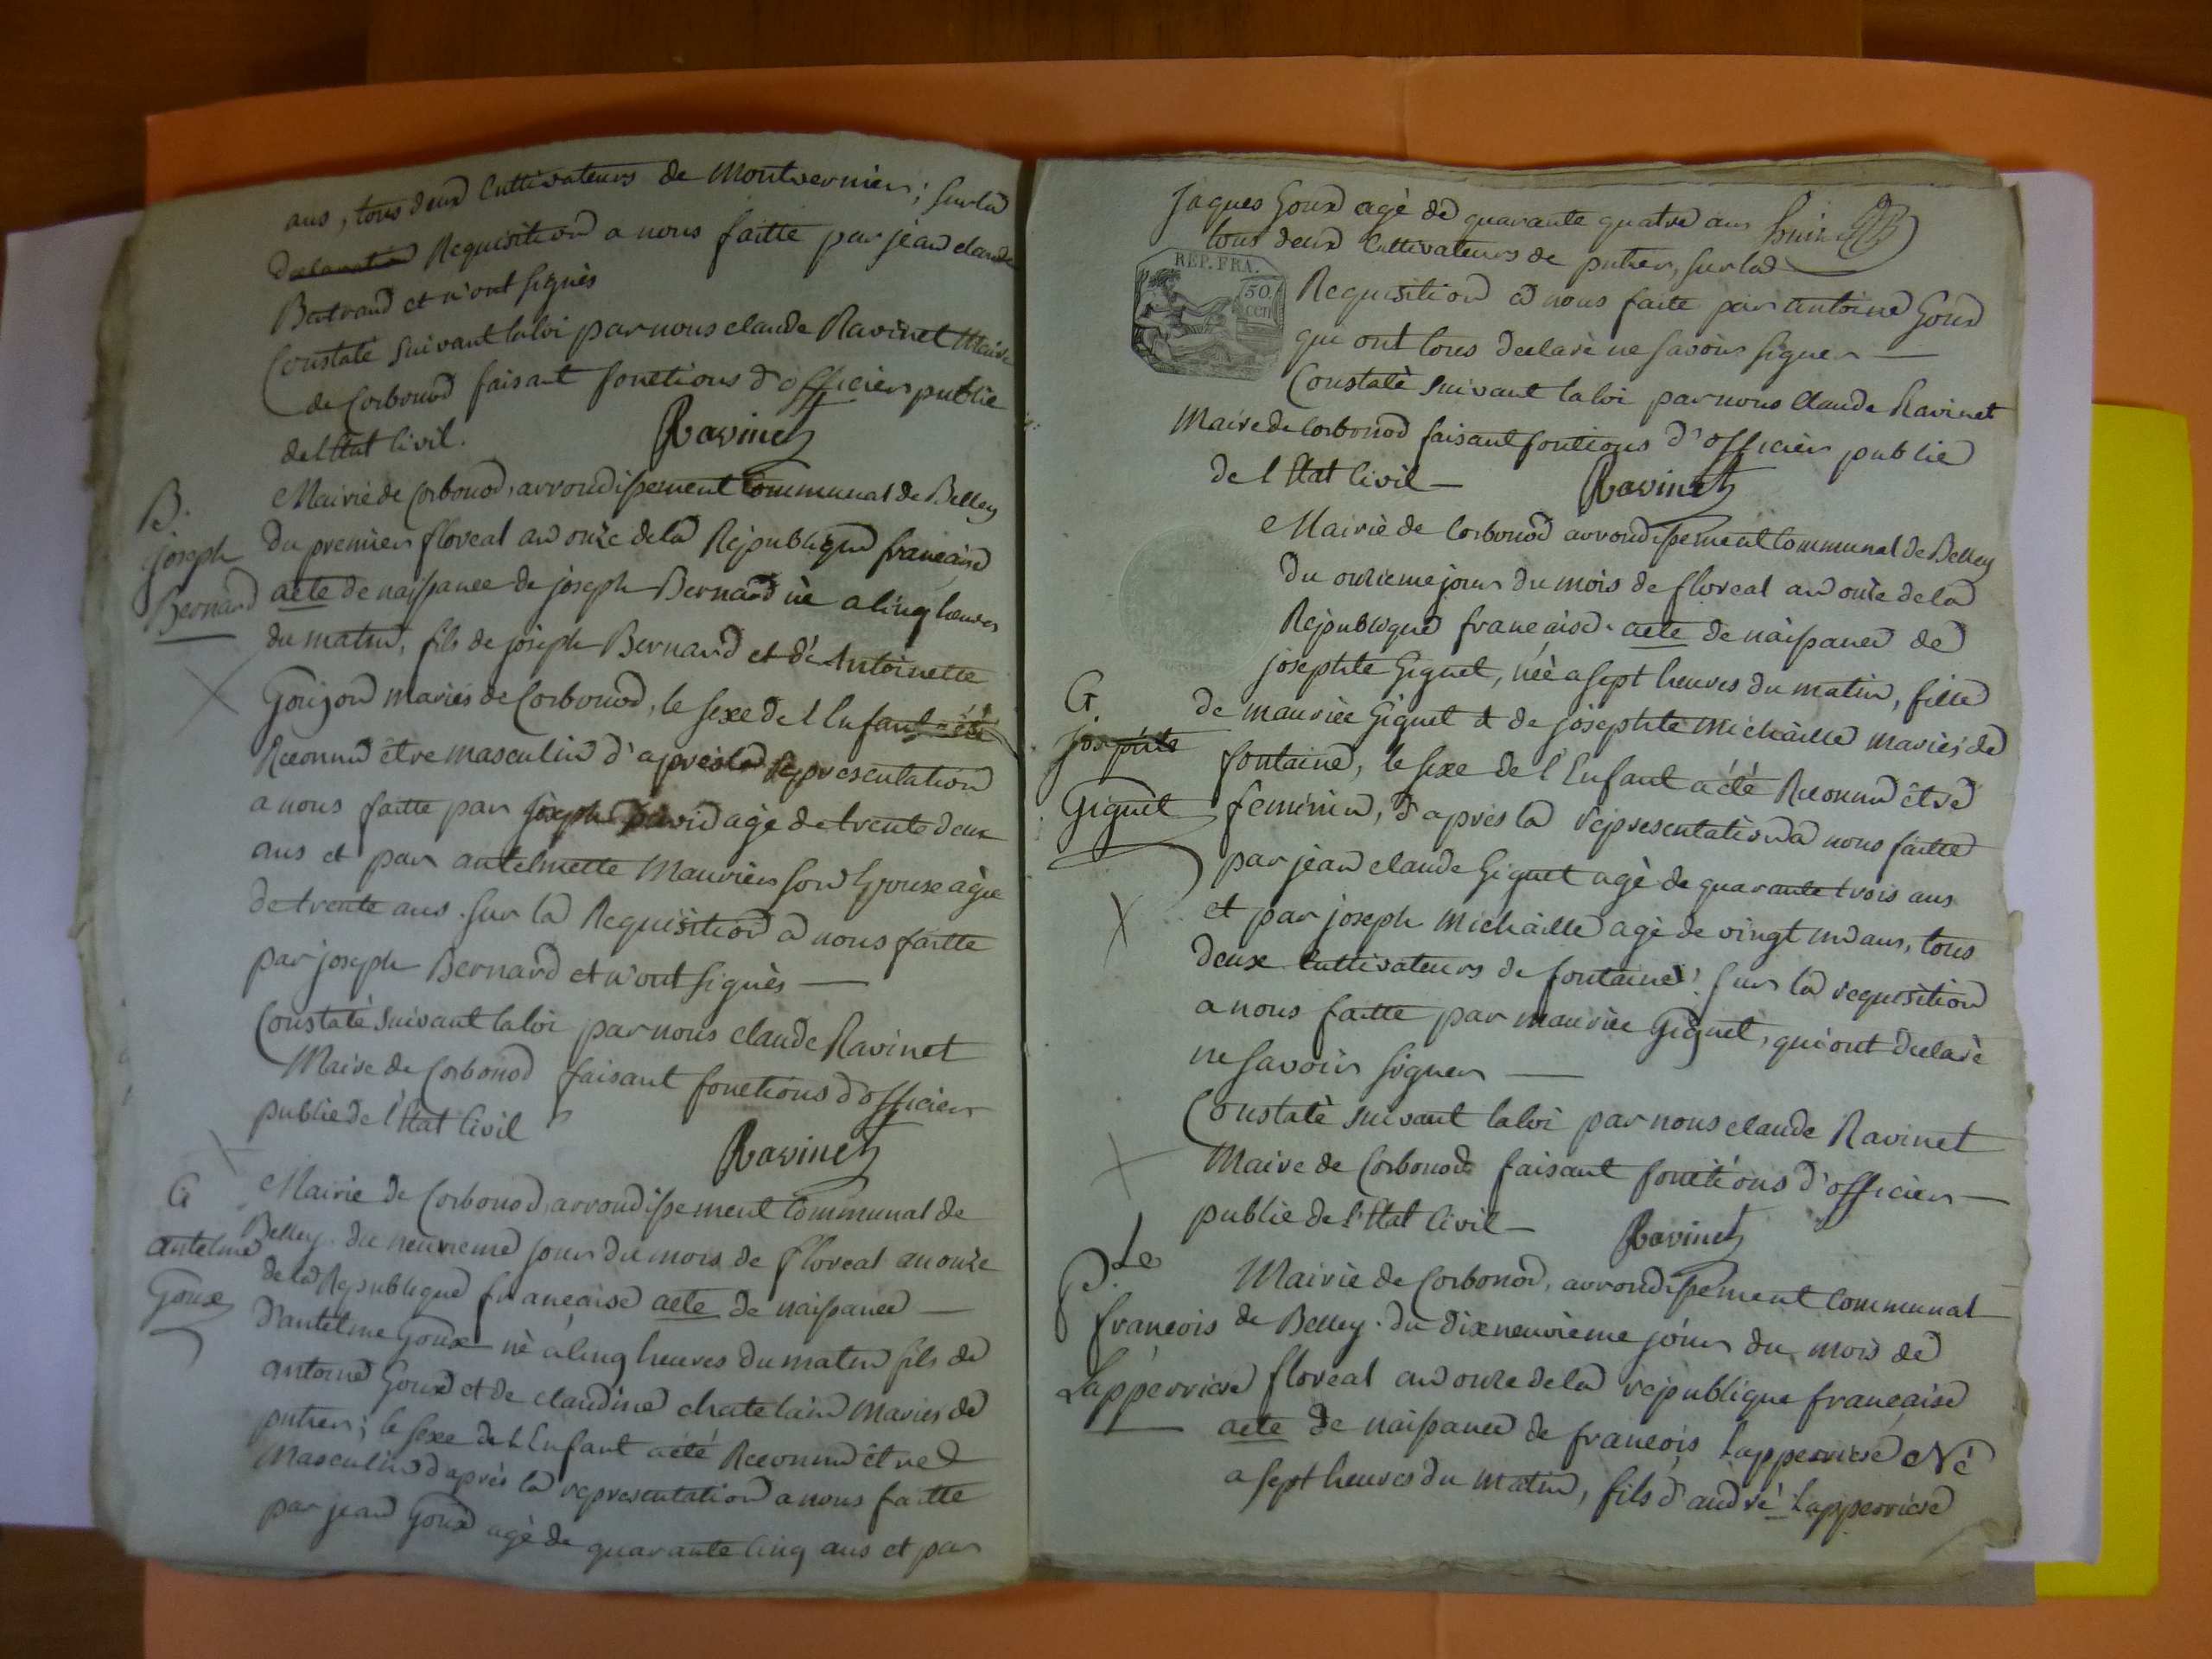 ans, tous deux Cultivateurs de Montvernier; sur la
declaration Requisition a nous faitte par jean claude
Bertrand et n'ont signès
Constatè suivant la loi par nous claude Ravinet Maire
de Corbonod faisant fonctions d'officier public
de l'Etat Civil.
Ravinet
Mairie de Corbonod, arrondissement Communal de Belley
B.
joseph
Bernard
du premier floreal an onze de la Republique francaise
acte de naissance de joseph Bernard nè a Cinq heures
du matin, fils de joseph Bernard et de Antoinette
Goujon mariès de Corbonod, le sexe de l'Enfant a été
Reconnu être masculin d'après la Representation
a nous faitte par joseph David agè de trente deux
ans et par antelmette Mauriers son Epouse agèe
de trente ans. sur la Requisition a nous faitte
par joseph Bernard et n'ont signès —
Constatè suivant la loi par nous claude Ravinet
Maire de Corbonod faisant fonctions d'officier
public de l'Etat Civil
Ravinet
Mairie de Corbonod, arrondissement Communal de
G
antelme
Goux
Belley. du neuvieme jour du mois de floreal an onze
de la Republique francaise acte de naissance —
d'antelme Goux nè a Cinq heures du matin fils de
antoine Goux et de claudine chatelain Mariès de
putier; le sexe de l'Enfant a été Reconnu être
Masculin d'après la representation a nous faitte
par jean Goux agè de quarante Cinq ans et par
Jaques Goux agè de quarante quatre ans
tous deux Cultivateurs de putier, sur la
REP. FRA.
50
cen
Requisition a nous faite par antoine Goux
qui ont tous declarè ne savoir signer —
Constatè suivant la loi par nous Claude Ravinet
Maire de Corbonod faisant fontions d'officier public
de l'Etat Civil —
Ravinet
Mairiè de Corbonod arrondissement Communal de Belley
du onzieme jour du mois de floreal an onze de la
Republique francaise. acte de naissance de
josephte Giguet, néè a sept heures du matin, fille
G.
josephte
Giguet
de mauriee Giguet & de josephte michaille mariès de
fontaine, le sexe de l'Enfant a été Reconnu être
feminin, d'après la representation a nous faitte
par jean claude Giguet agè de quarante trois ans
et par joseph michaille agè de vingt un ans, tous
deux Cultivateurs de fontaine. sur la requisition
a nous faitte par mauriee Giguet, qui ont declarè
ne savoir signer —
Constatè suivant la loi par nous claude Ravinet
Maire de Corbonod faisant fonctions d'officier —
public de l'Etat Civil —
Ravinet
Mairie de Corbonod, arrondissement communal
francois
Lapperriere
de Belley. du dixneuvieme jour du mois de
floreal an onze de la republique francaise
acte de naissance de francois Lapperriere Nè
a sept heures du matin, fils d'andré Lapperriere